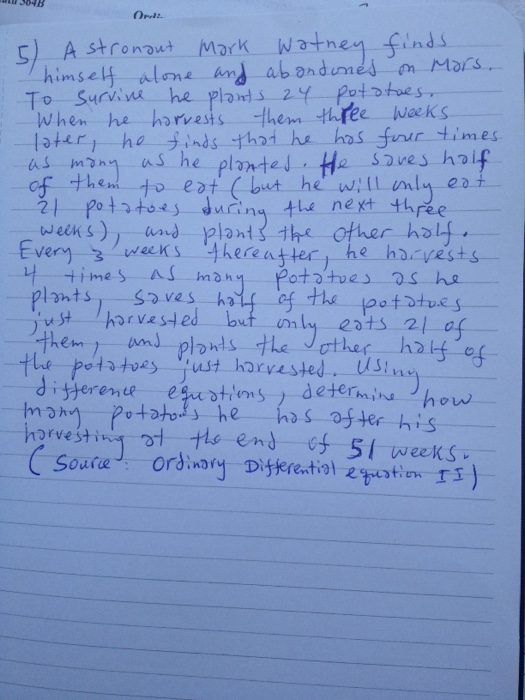 Ordi
5) Astronaut Mark Watney finds
himself alone and abandoned on Mars.
To survive he plants 24 potatoes.
When he harvests them three weeks
later, he finds that he has four times
as many as he planted. He saves half
of them to eat (but he will only eat
21 potatoes during the next three
weeks), and plants the other half.
Every 3 weeks thereafter, he harvests
4 times as many potatoes as he
plants, saves half of the potatoes
just harvested but only eats 21 of
them, and plants the other half of
the potatoes just harvested. Using
difference equations, determine how
many potatoes he has after his
harvesting at the end of 51 weeks.
(Source: Ordinary Differential equation II)